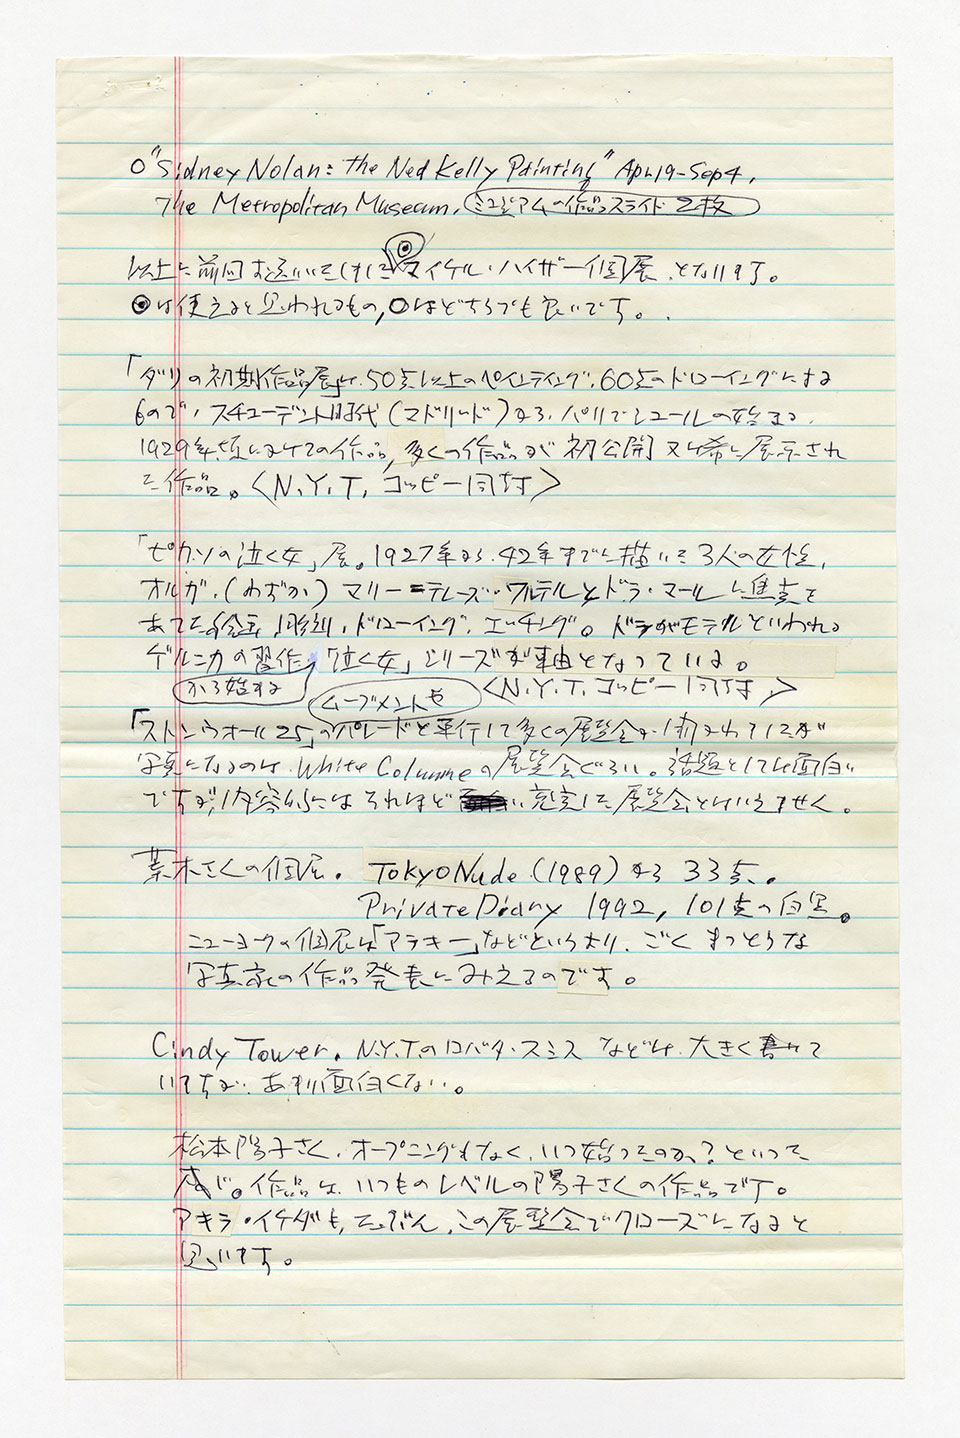 ○"Sidney Nolan: The Ned Kelly Painting" Apr19-Sep4,
The Metropolitan Museum. ミュジアムの作品スライド 2枚
以上に前回お送りいたしました◎マイケル・ハイザー個展、となります。
◎は使えると思われるもの,○はどちらでも良いです。
「ダリの初期作品展」は、50点以上のペインティング、60点のドローイングによる
もので、スチューデント時代(マドリード)から、パリでシュールの始まる、
1929年頃にかけての作品,多くの作品が初公開又は希に展示され
た作品。<N.Y.T. コッピー同封>
「ピカソの泣く女」展。1927年から42年までに描いた3人の女性,
オルガ,(わずか) マリー=テレーズ・ワルテルとドラ・マールに焦点を
あてた絵画,彫刻,ドローイング,エッチング。ドラがモデルといわれる
ゲルニカの習作から始まる「泣く女」シリーズが軸となっている。
<N.Y.T.コッピー同封>
「ストンウォール25」のムーブメントやパレードと平行して多くの展覧会が行なわれていますが
写真になるのは White Columne の展覧会ぐらい。話題としては面白い
ですが,内容的にはそれほど充実した展覧会とはいえません。
荒木さんの個展。 Tokyo Nude (1989) から 33点。
Private Diary 1992, 101点の白黒。
ニューヨークの個展は「アラキー」などというより、ごくまっとうな
写真家の作品発表にみえるのです。
Cindy Tower. N.Y.Tのロバタ・スミス などは、大きく書いて
いますが、あまり面白くない。
松本陽子さん、オープニングもなく、いつ始ったのか?といった
感じ。作品は、いつものレベルの陽子さんの作品です。
アキラ・イケダも,たぶん、この展覧会でクローズになると
思います。